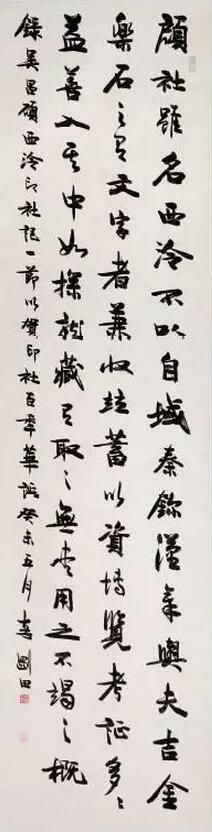 顧社雖名西泠不以自域秦鉨漢章與夫吉金
樂石之有文字者兼收竝蓄以資博覽考証多〻
益善入其中如探龍藏有取之無尽用之不竭之概
錄吳昌碩西泠印社記一節以賀印社百年華誕癸未五月李剛田